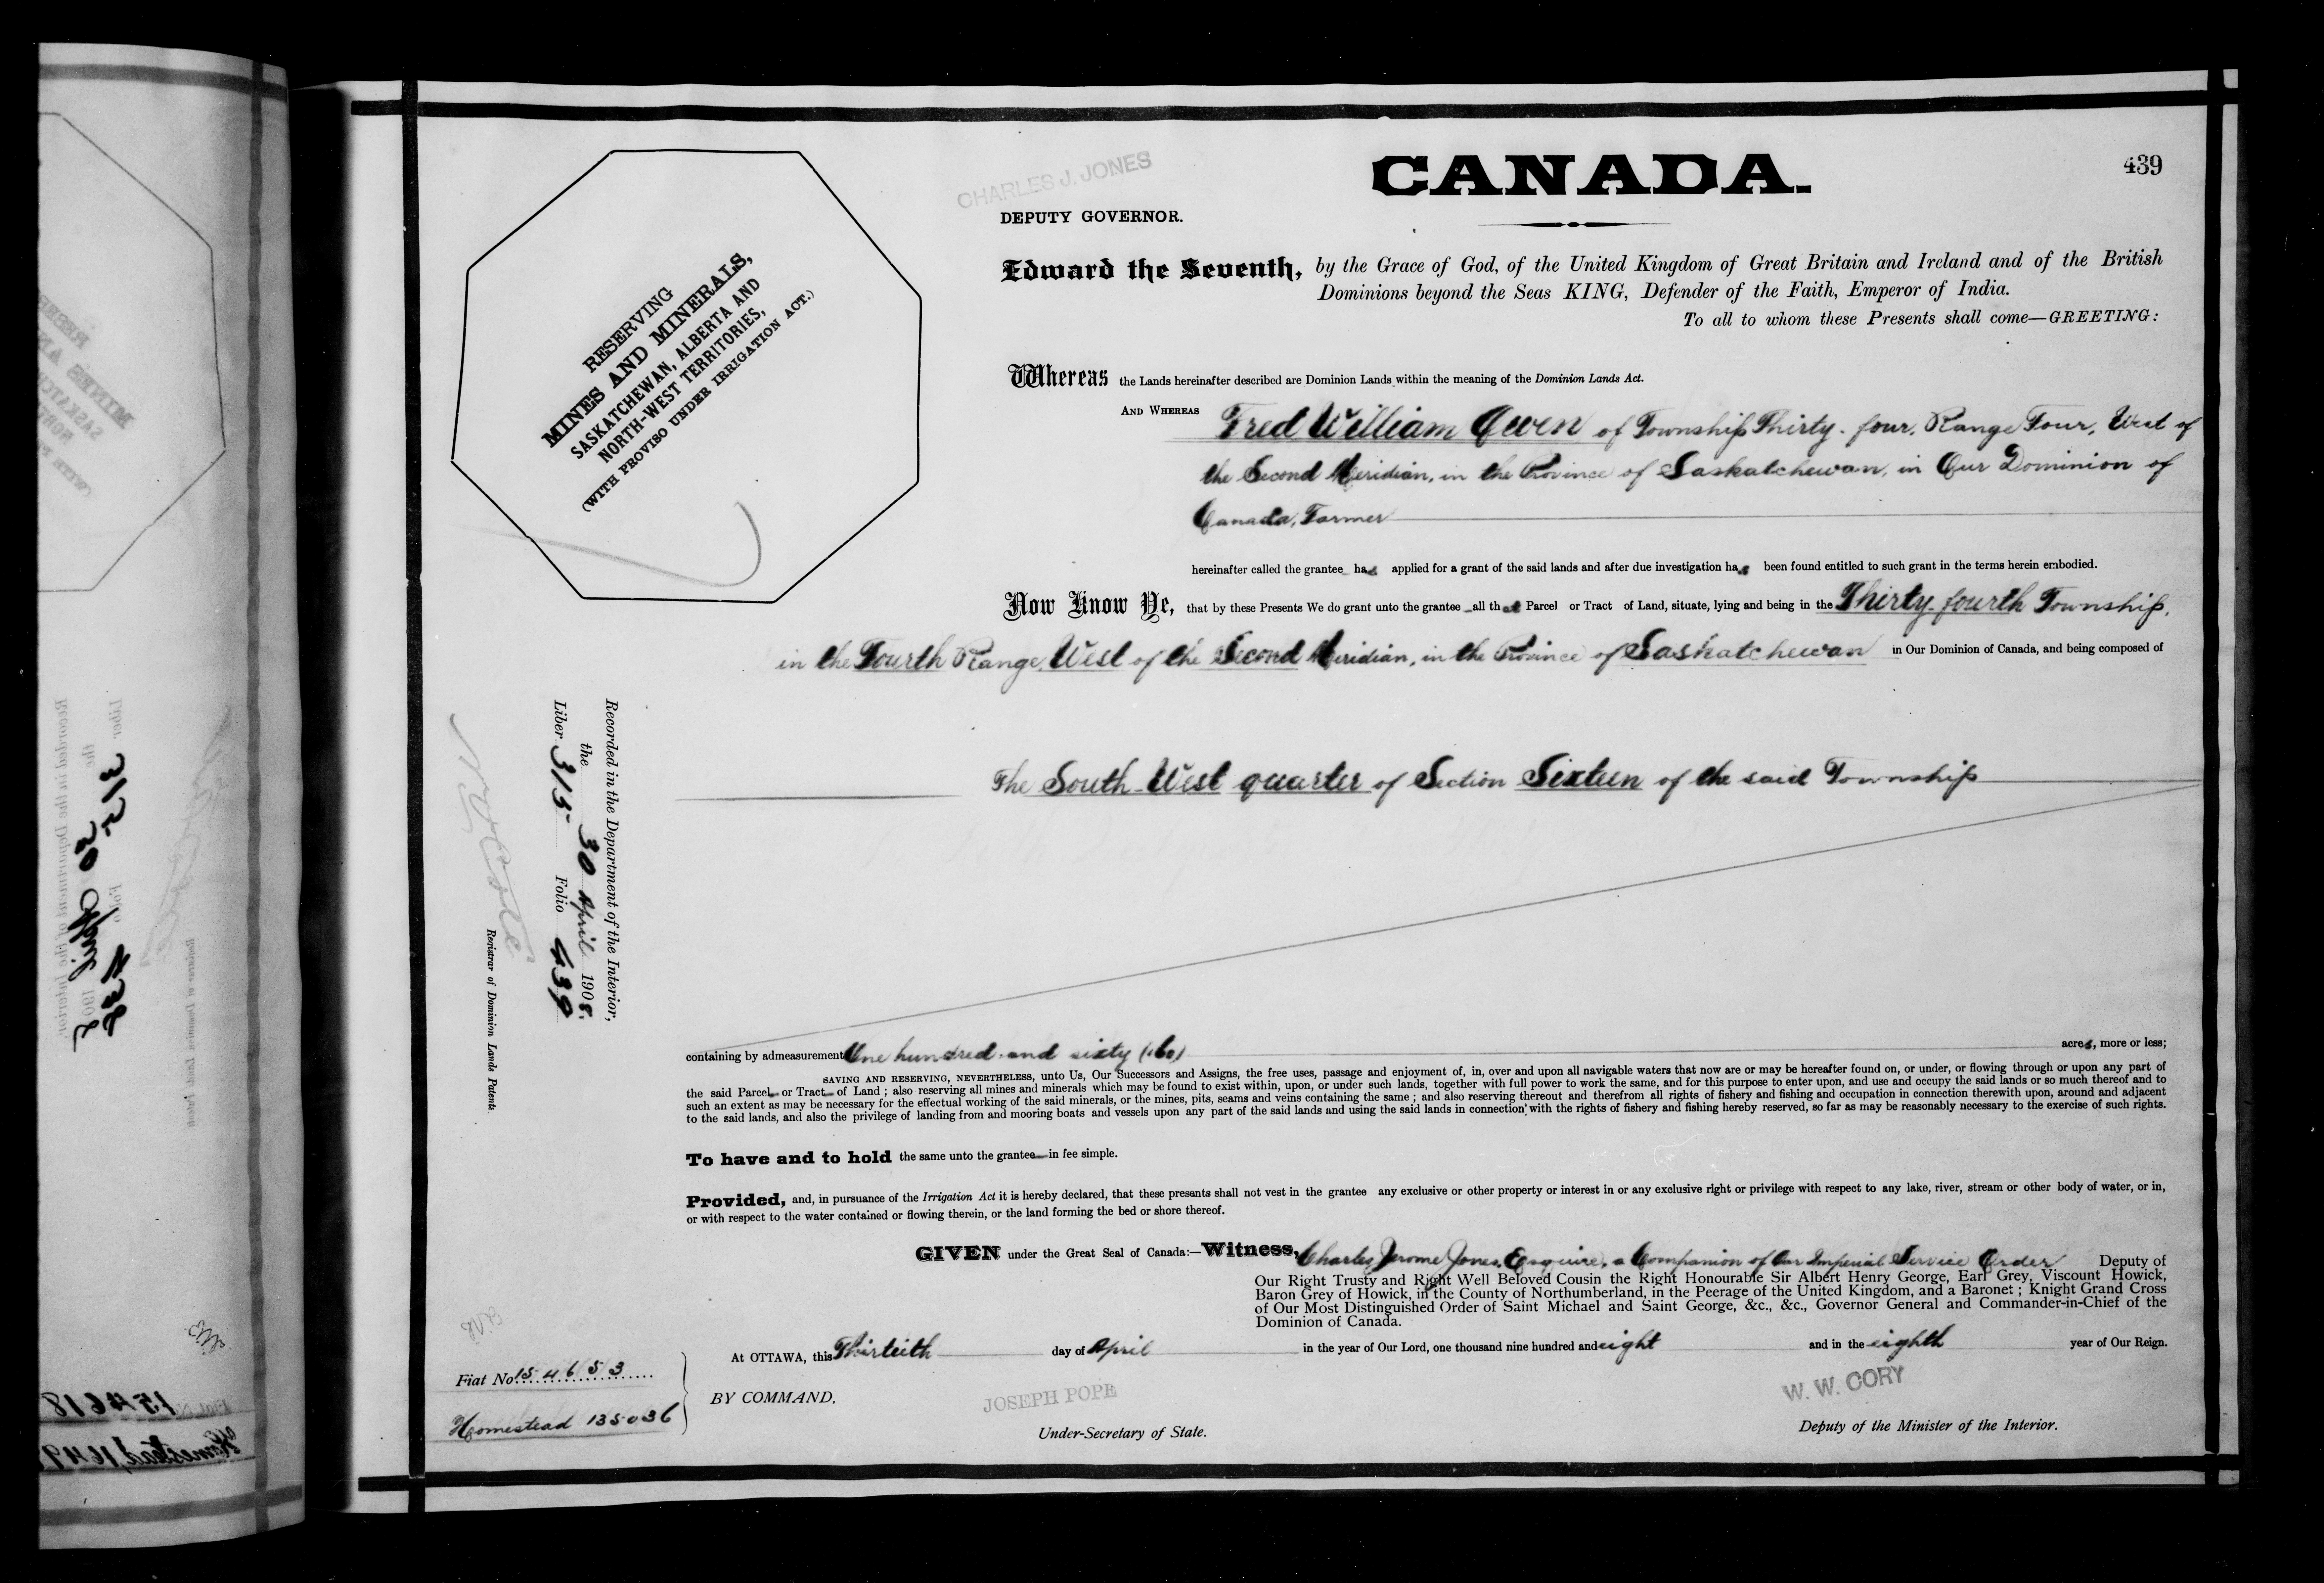 CANADA.
439
CHARLES J. JONES
DEPUTY GOVERNOR.
RESERVING
MINES AND MINERALS,
SASKATCHEWAN, ALBERTA AND
NORTH-WEST TERRITORIES,
(WITH PROVISO UNDER IRRIGATION ACT.)
Edward the Seventh, by the Grace of God, of the United Kingdom of Great Britain and Ireland and of the British
Dominions beyond the Seas KING, Defender of the Faith, Emperor of India.
To all to whom these Presents shall come—GREETING:
Whereas the Lands hereinafter described are Dominion Lands within the meaning of the Dominion Lands Act.
AND WHEREAS Fred William Owen of Township Thirty-four, Range Four, West of
the Second Meridian, in the Province of Saskatchewan, in Our Dominion of
Canada, Farmer
hereinafter called the grantee has applied for a grant of the said lands and after due investigation has been found entitled to such grant in the terms herein embodied.
Now Know Ye, that by these Presents We do grant unto the grantee all that Parcel or Tract of Land, situate, lying and being in the Thirty-fourth Township,
in the Fourth Range, West of the Second Meridian, in the Province of Saskatchewan in Our Dominion of Canada, and being composed of
The South-West quarter of Section Sixteen of the said Township
Recorded in the Department of the Interior,
the 30 April 1908.
Liber 315 Folio 439
Registrar of Dominion Lands Patents.
containing by admeasurement One hundred and sixty (160) acres, more or less;
SAVING AND RESERVING, NEVERTHELESS, unto Us, Our Successors and Assigns, the free uses, passage and enjoyment of, in, over and upon all navigable waters that now are or may be hereafter found on, or under, or flowing through or upon any part of
the said Parcel or Tract of Land; also reserving all mines and minerals which may be found to exist within, upon, or under such lands, together with full power to work the same, and for this purpose to enter upon, and use and occupy the said lands or so much thereof and to
such an extent as may be necessary for the effectual working of the said minerals, or the mines, pits, seams and veins containing the same; and also reserving thereout and therefrom all rights of fishery and fishing and occupation in connection therewith upon, around and adjacent
to the said lands, and also the privilege of landing from and mooring boats and vessels upon any part of the said lands and using the said lands in connection with the rights of fishery and fishing hereby reserved, so far as may be reasonably necessary to the exercise of such rights.
To have and to hold the same unto the grantee in fee simple.
Provided, and, in pursuance of the Irrigation Act it is hereby declared, that these presents shall not vest in the grantee any exclusive or other property or interest in or any exclusive right or privilege with respect to any lake, river, stream or other body of water, or in,
or with respect to the water contained or flowing therein, or the land forming the bed or shore thereof.
GIVEN under the Great Seal of Canada:—Witness, Charles Jerome Jones, Esquire, a Companion of Our Imperial Service Order Deputy of
Our Right Trusty and Right Well Beloved Cousin the Right Honourable Sir Albert Henry George, Earl Grey, Viscount Howick,
Baron Grey of Howick, in the County of Northumberland, in the Peerage of the United Kingdom, and a Baronet; Knight Grand Cross
of Our Most Distinguished Order of Saint Michael and Saint George, &c., &c., Governor General and Commander-in-Chief of the
Dominion of Canada.
At OTTAWA, this Thirtieth day of April in the year of Our Lord, one thousand nine hundred and eight and in the eighth year of Our Reign.
Fiat No. 154653
Homestead 135036
BY COMMAND,
JOSEPH POPE
Under-Secretary of State.
W. W. CORY
Deputy of the Minister of the Interior.